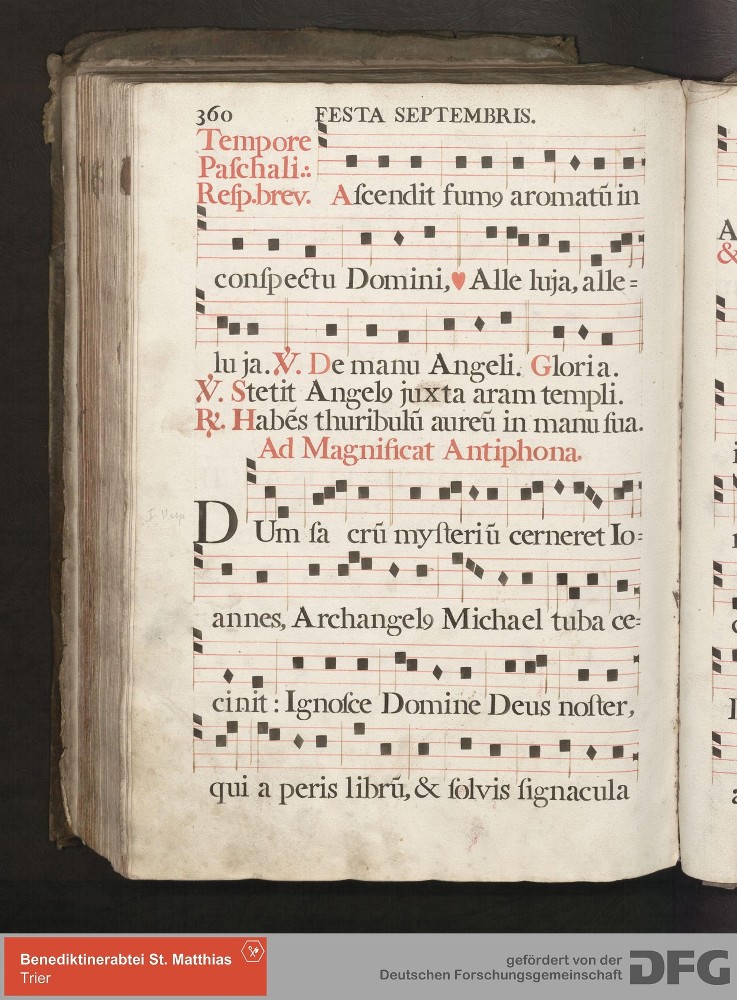 360 FESTA SEPTEMBRIS.
Tempore
Paſchali.:.
Reſp.brev. Aſcendit fumꝯ aromatū in
conſpectu Domini,♥ Alle luja, alle=
lu ja. ℣. De manu Angeli. Gloria.
℣. Stetit Angelꝯ juxta aram templi.
℟. Habēs thuribulū aureū in manu ſua.
Ad Magnificat Antiphona.
DUm ſa crū myſteriū cerneret Io=
annes, Archangelꝯ Michael tuba ce=
cinit : Ignoſce Domine Deus noſter,
qui a peris librū, & ſolvis ſignacula
Benediktinerabtei St. Matthias
Trier
gefördert von der
Deutschen Forschungsgemeinschaft
DFG